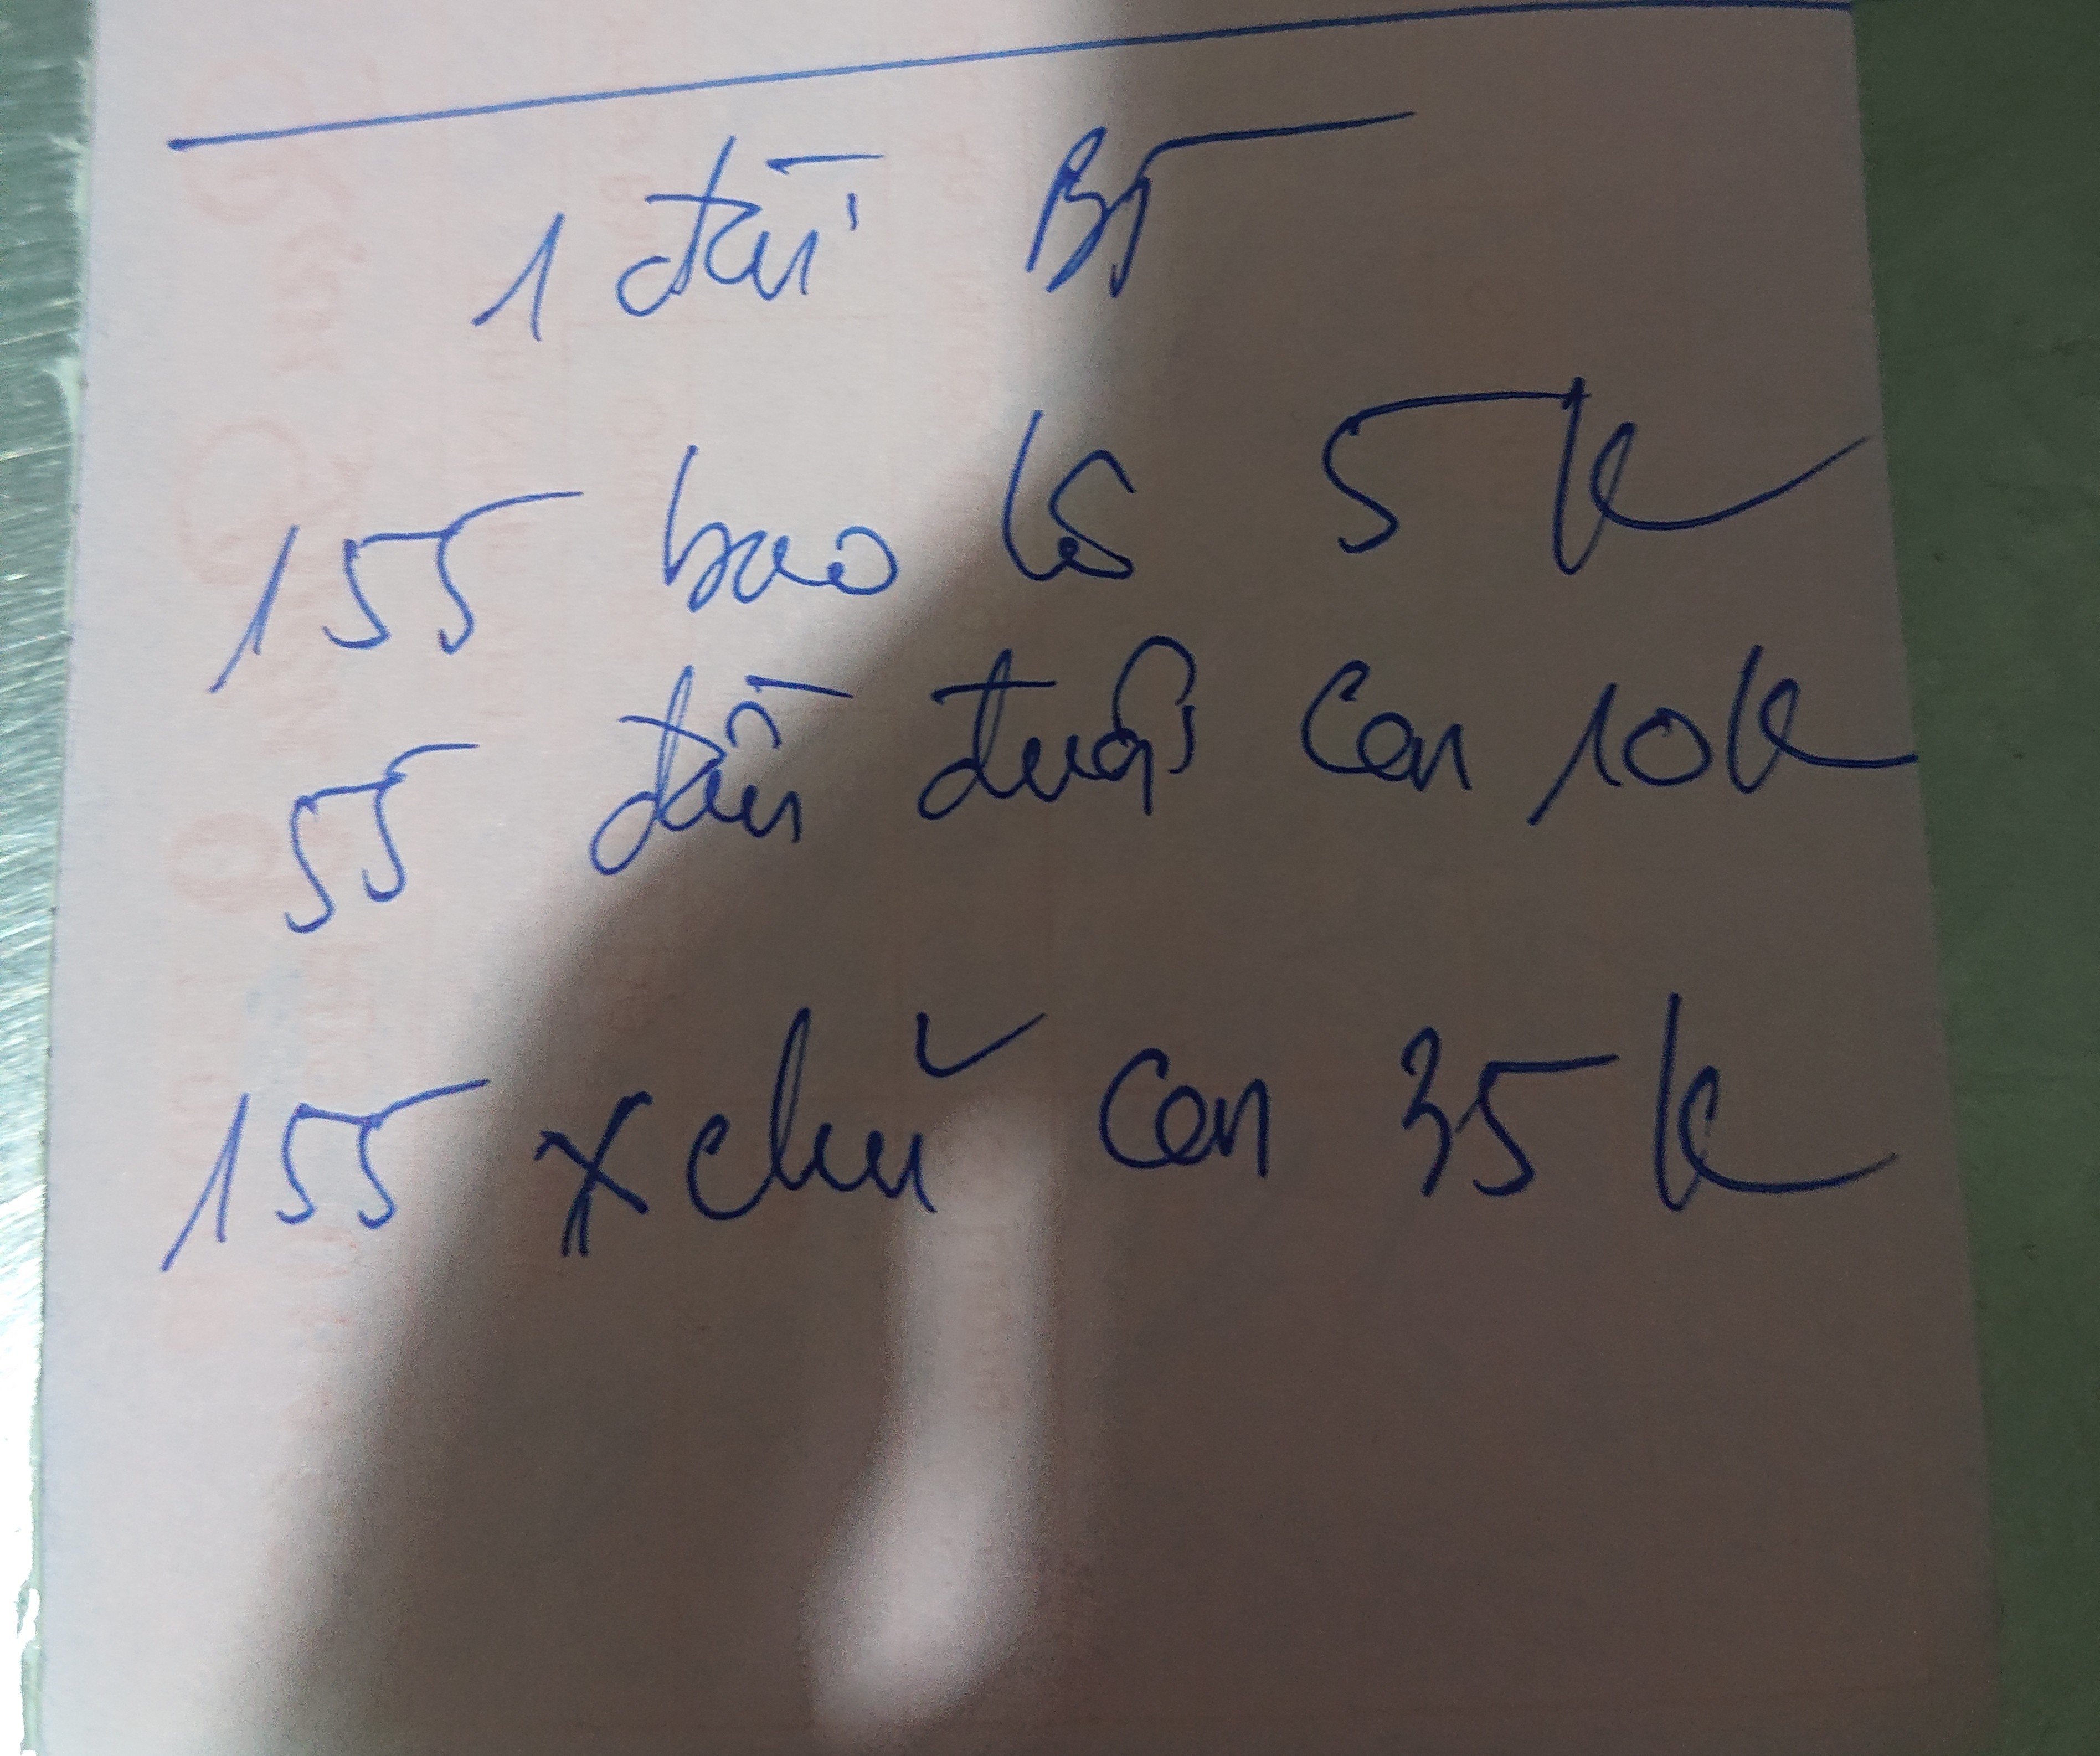 1 đài BT
155 bao lô 5K
55 đầu đuôi con 10K
155 x chữ con 35K